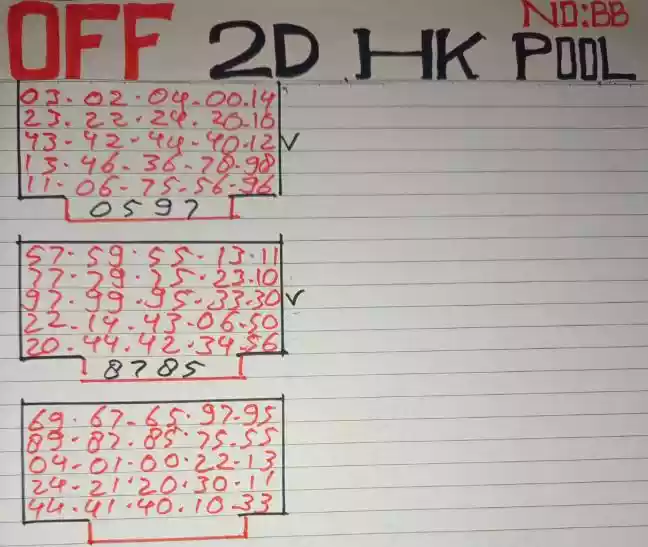 NO:BB
OFF 2D HK POOL
03-02-04-00.14
23-22-24-20-10
43-42-44-40.12 V
13-46-36-70-98
11-06-75-56-96
0597
57-59-55-13-11
77-79-75-23.10
97-99-95-33.30 V
22-14-43-06-50
20-44-42-34-56
8785
69-67-65-97-95
89-87-85-75-55
04-01-00-22-13
24-21-20-30-11
44-41-40-10-33